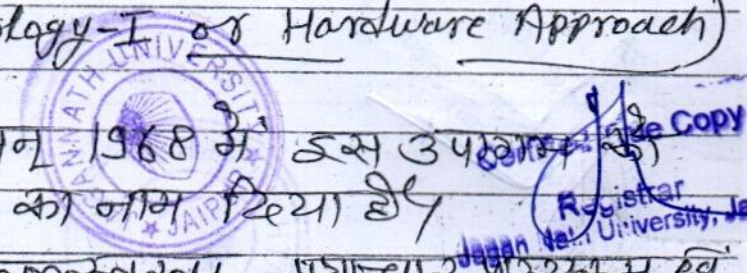 logy-I or Hardware Approach)
न् 1968 में इस उपागम को
का नाम दिया है।
JAGANNATH UNIVERSITY
JAIPUR
Copy
Registrar
University, Ja